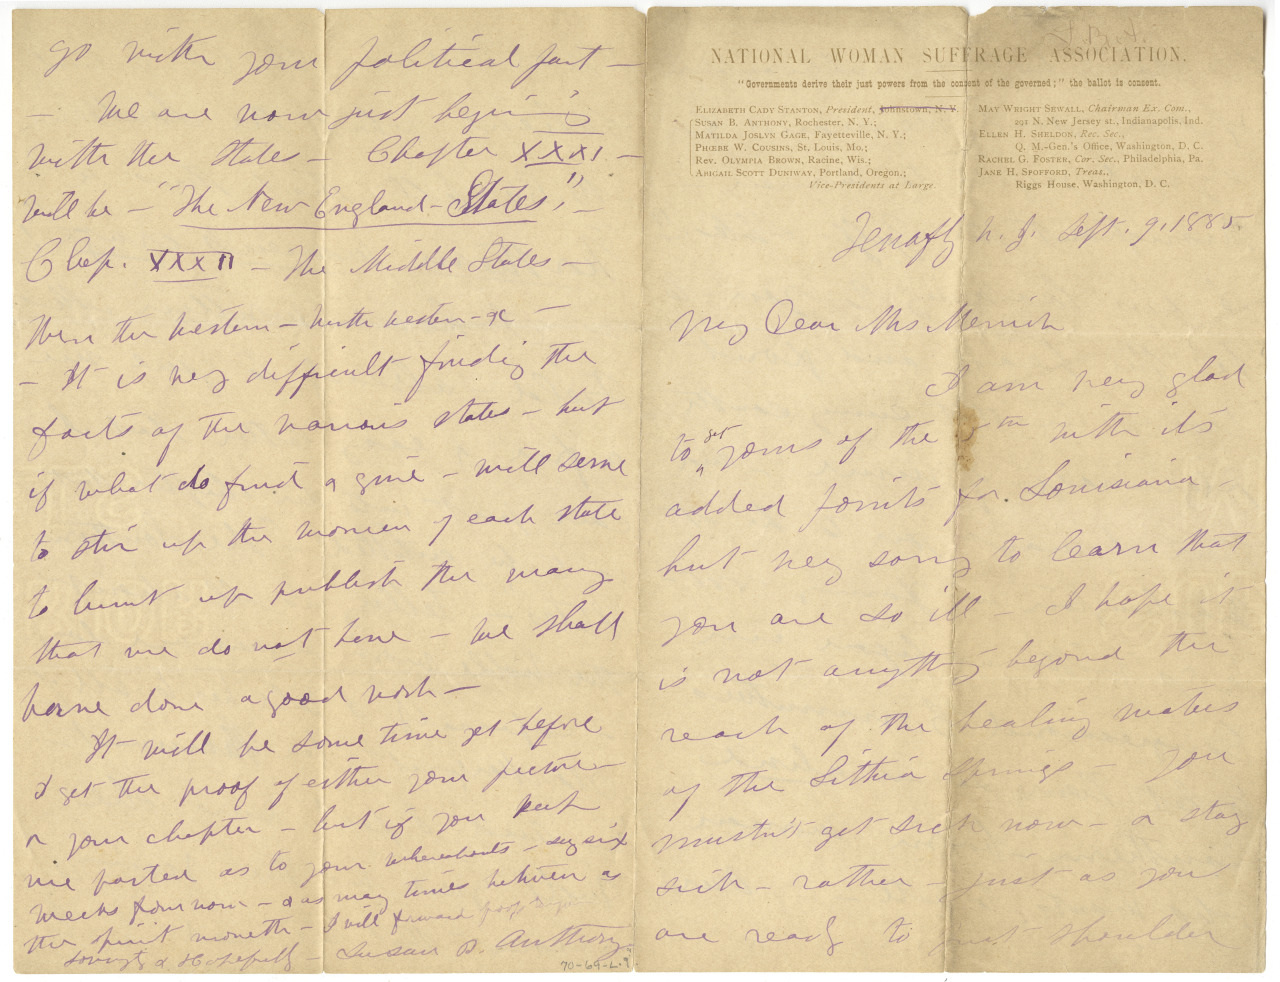 S. B. A.
NATIONAL WOMAN SUFFRAGE ASSOCIATION.
"Governments derive their just powers from the consent of the governed;" the ballot is consent.
ELIZABETH CADY STANTON, President, Johnstown, N. Y.
SUSAN B. ANTHONY, Rochester, N. Y.;
MATILDA JOSLYN GAGE, Fayetteville, N. Y.;
PHŒBE W. COUSINS, St. Louis, Mo.;
Rev. OLYMPIA BROWN, Racine, Wis.;
ABIGAIL SCOTT DUNIWAY, Portland, Oregon.;
Vice-Presidents at Large.
MAY WRIGHT SEWALL, Chairman Ex. Com.,
291 N. New Jersey st., Indianapolis, Ind.
ELLEN H. SHELDON, Rec. Sec.,
Q. M.-Gen.'s Office, Washington, D. C.
RACHEL G. FOSTER, Cor. Sec., Philadelphia, Pa.
JANE H. SPOFFORD, Treas.,
Riggs House, Washington, D. C.
Tenafly N. J. Sept. 9, 1885.
My Dear Mrs Merrick
I am very glad
to get yours of the 5th with it's
added points for Louisiana -
but very sorry to learn that
you are so ill - I hope it
is not anything beyond the
reach of the healing waters
of the Lithia Springs - you
mustn't get sick now - or stay
sick - rather - just as you
are ready to just shoulder
go with your political part -
- We are now just begining
with the States - Chapter XXXI -
will be - "The New England - States," -
Chap. XXXII - The Middle States -
Then the western - north western - &c -
- It is very difficult finding the
facts of the various states - but
if what do find & give - will serve
to stir up the women of each state
to hunt up & publish the many
that we do not have - we shall
have done a good work -
It will be some time yet before
I get the proof of either your picture -
or your chapter - but if you keep
me posted as to your whereabouts - say six
weeks from now - & as many times between as
the spirit moveth - I will forward proof
Lovingly & Hopefully - Susan B. Anthony
70-69-L.9